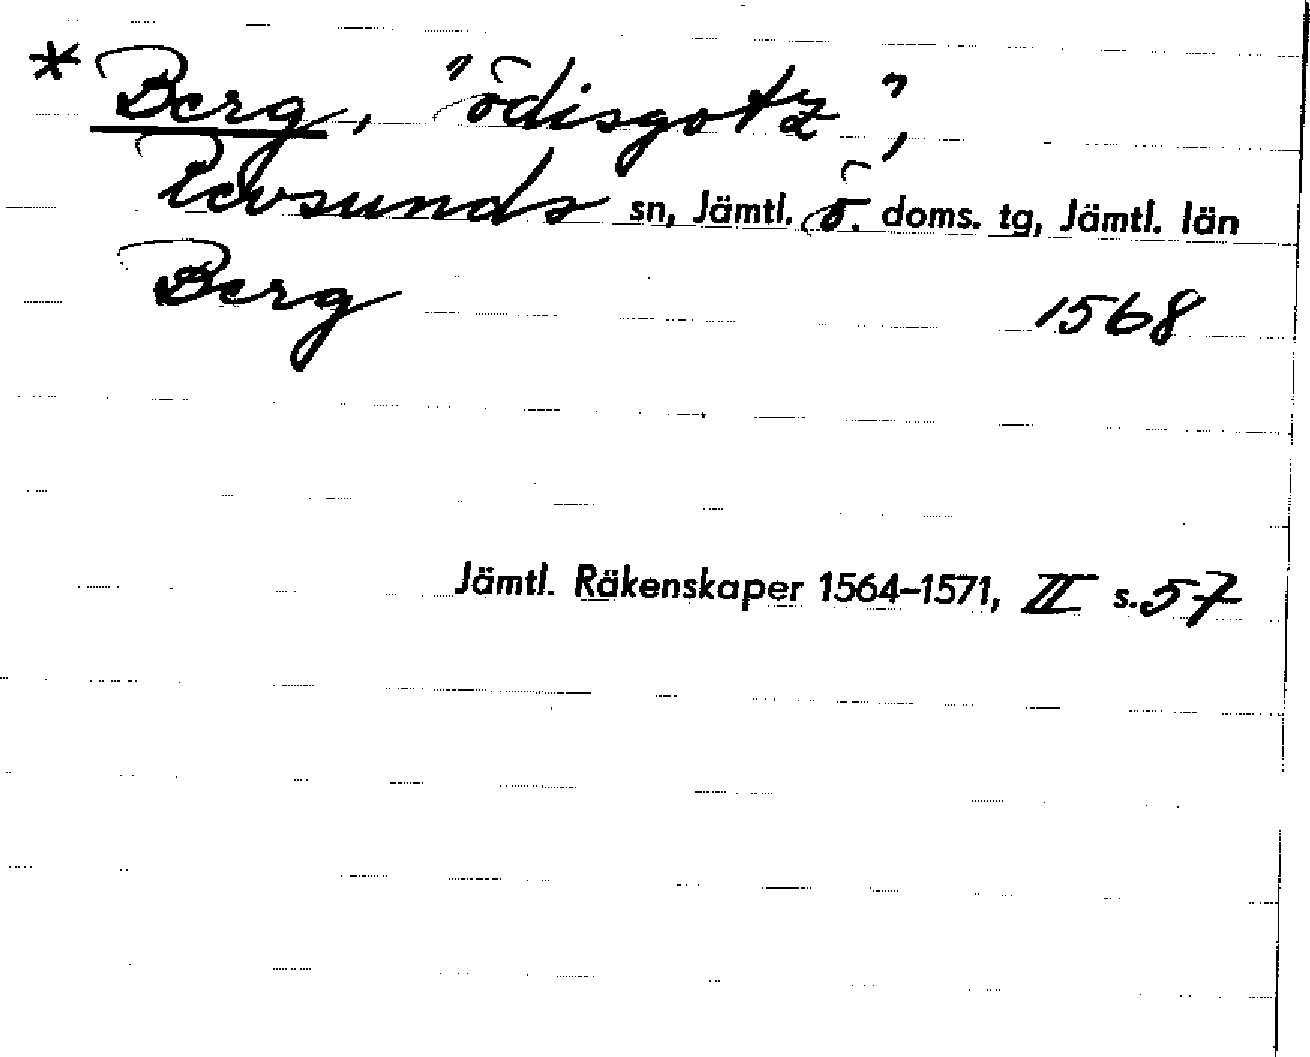 * Berg, "ödisgotz",
Revsunds sn, Jämtl. ö. doms. tg, Jämtl. län
Berg 1568
Jämtl. Räkenskaper 1564–1571, II s. 57